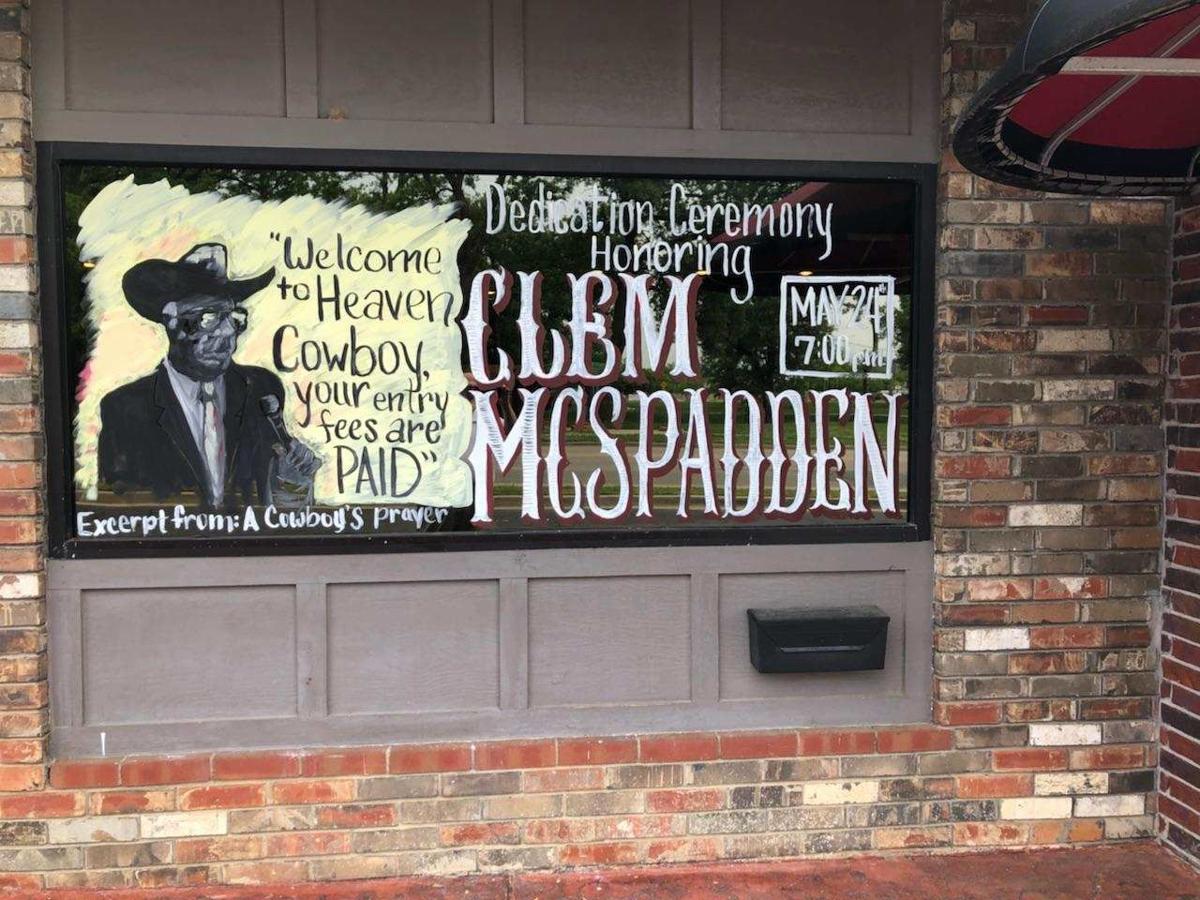 "Welcome
to Heaven
Cowboy,
your entry
fees are
PAID"
Excerpt from: A Cowboy's prayer
Dedication Ceremony
Honoring
CLEM
MCSPADDEN
MAY 24th
7:00 pm